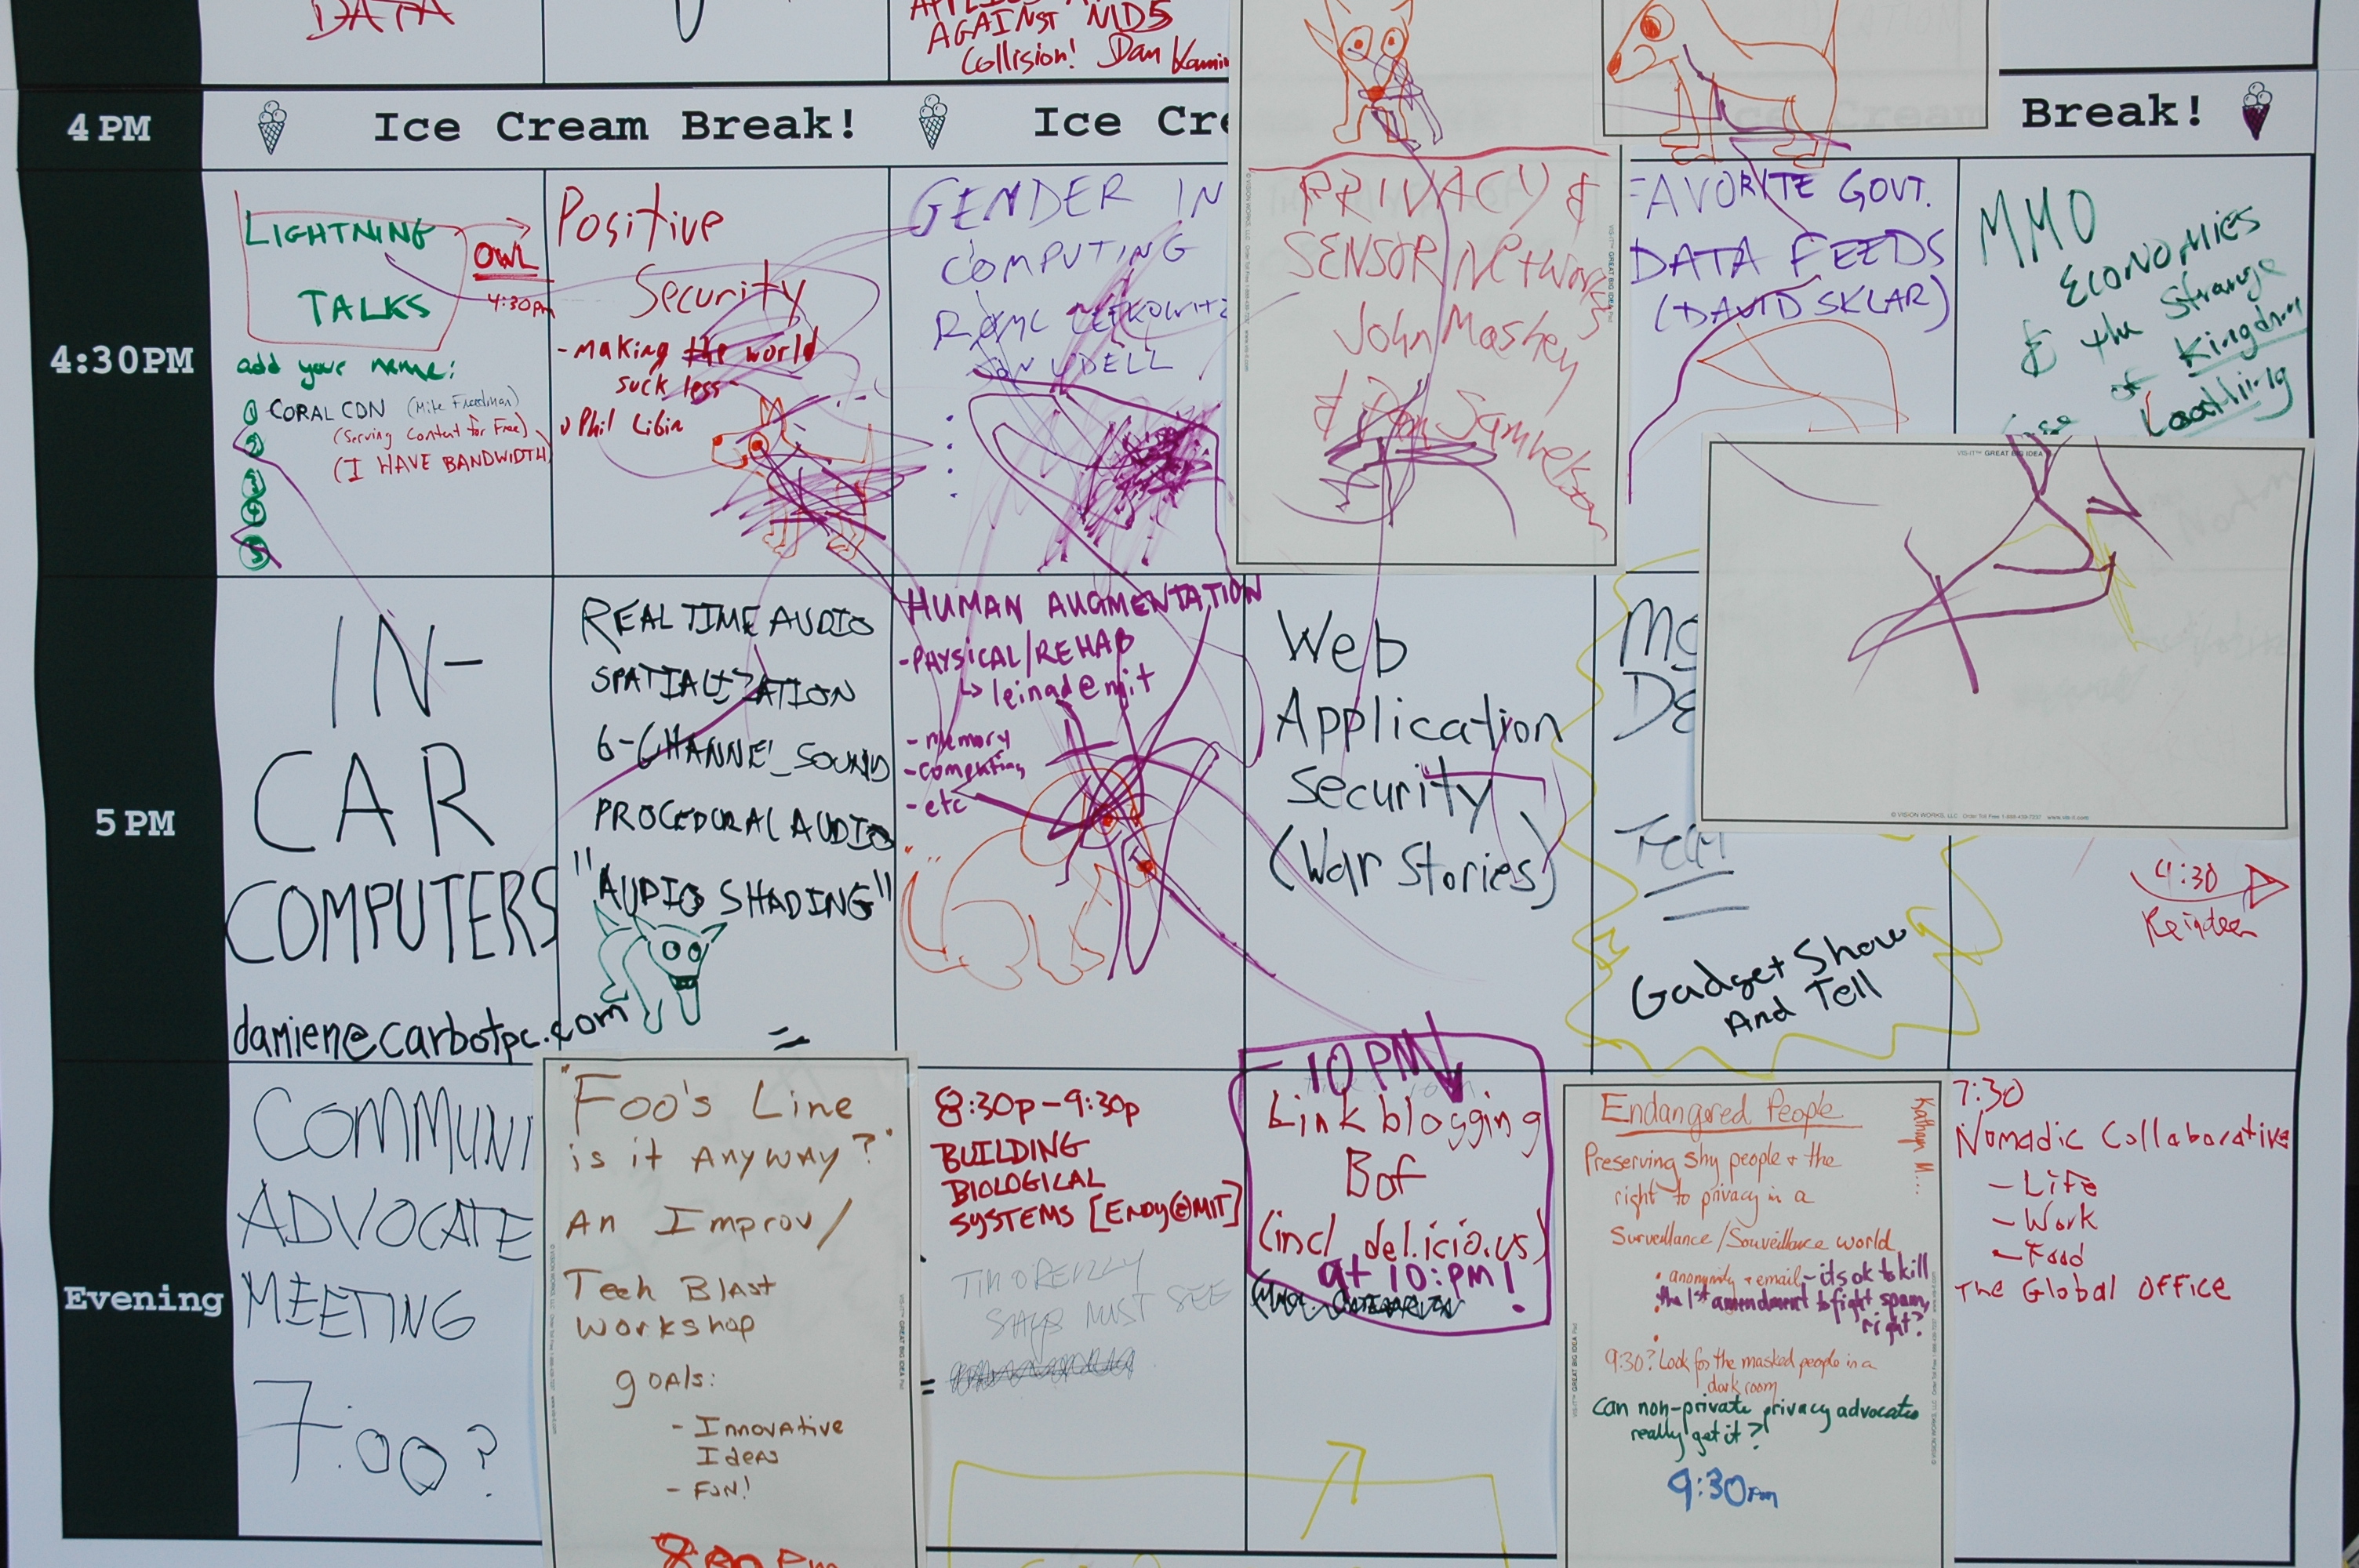 DATA
AGAINST MD5
Collision! Dan Kamin
4 PM
Ice Cream Break!
Ice Cre
Break!
4:30PM
LIGHTNING
TALKS
OWL
4:30pm
add your name:
1 CORAL CDN (Mike Freedman)
(Serving Content for Free)
(I HAVE BANDWIDTH)
2
3
4
5
Positive
Security
- making the world
suck less
Phil Libin
GENDER IN
COMPUTING
JON UDELL
PRIVACY &
SENSOR Networks
John Mashey
& Dan Samuelson
FAVORITE GOVT.
DATA FEEDS
(DAVID SKLAR)
MMO
ECONOMIES
& the Strange
of Kingdom
Loathing
VIS-IT™ GREAT BIG IDEA
© VISION WORKS, LLC Order Toll Free 1-888-439-7237 www.vis-it.com
5 PM
IN-
CAR
COMPUTERS
damien@carbotpc.com
REAL TIME AUDIO
SPATIALIZATION
6-CHANNEL SOUND
PROCEDURAL AUDIO
"AUDIO SHADING"
=
HUMAN AUGMENTATION
- PHYSICAL/REHAB
↳ leinad@mit
- memory
- computing
- etc
Web
Application
Security
(War Stories)
Gadget Show
And Tell
4:30
Reindeer
Evening
COMMUNI
ADVOCATE
MEETING
7:00?
"Foo's Line
is it Anyway?"
An Improv/
Tech Blast
Workshop
goals:
- Innovative
Ideas
- Fun!
8:00 Pm
8:30p-9:30p
BUILDING
BIOLOGICAL
SYSTEMS [ENDY@MIT]
TIM OREILLY
SAYS MUST SEE
=
10 PM
Link blogging
Bof
(incl del.icio.us)
at 10:PM!
Endangered People
Kathryn M...
Preserving shy people + the
right to privacy in a
Surveillance/Souveillance world
• anonymity + email - its ok to kill
the 1st amendment to fight spam,
right?
9:30? Look for the masked people in a
dark room
Can non-private privacy advocates
really get it?
9:30 pm
7:30
Nomadic Collaborative
- Life
- Work
- Food
The Global Office